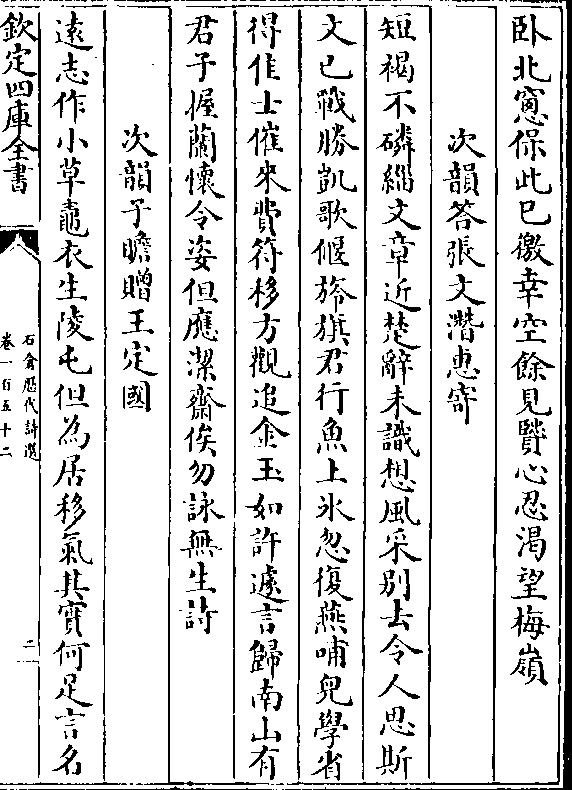 卧北窻保此已徼幸空餘見賢心忍渴望梅嶺
次韻答張文潛惠寄
短褐不磷緇文章近楚辭未識想風采别去令人思斯
文已戰勝凱歌偃旂旗君行魚上氷忽復燕哺兒學省
得佳士催來費符移方觀追金玉如許遽言歸南山有
君子握蘭懷令姿但應潔齋俟勿詠無生詩
次韻子瞻贈王定國
遠志作小草鼃衣生陵屯但為居移氣其實何足言名
欽定四庫全書
石倉歴代詩選
卷一百五十二
二